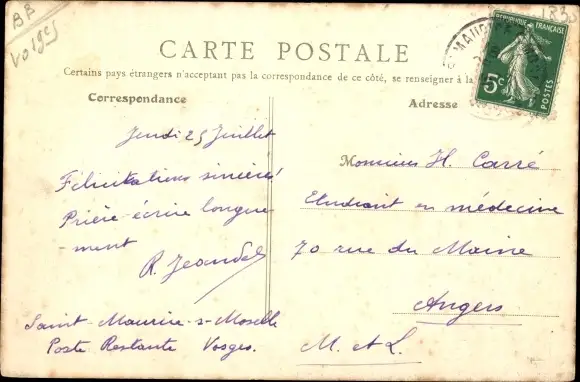 BB
Vosges
CARTE POSTALE
Certains pays étrangers n'acceptent pas la correspondance de ce côté, se renseigner à la
Correspondance
Jeudi 25 Juillet
Félicitations sincères!
Prière écrire longue
-ment
R. Jeandel
Saint-Maurice-s-Moselle
Poste Restante Vosges.
RÉPUBLIQUE FRANÇAISE
5c
POSTES
Adresse
Monsieur H. Carré
Etudiant en médecine
70 rue du Maine
Angers
M. et L.